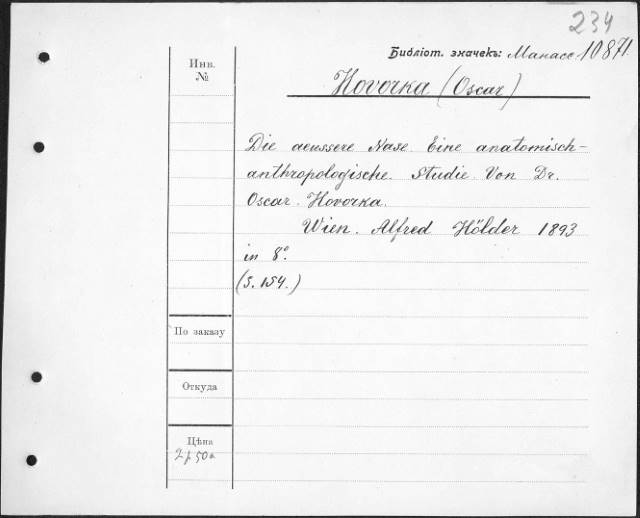 234
Библіот. значекъ: Манасс. 10871.
Инв.
№
Hovorka (Oscar)
Die aeussere Nase. Eine anatomisch-
anthropologische. Studie. Von Dr.
Oscar. Hovorka.
Wien. Alfred Hölder 1893
in 8°.
(S. 154.)
По заказу
Откуда
Цѣна